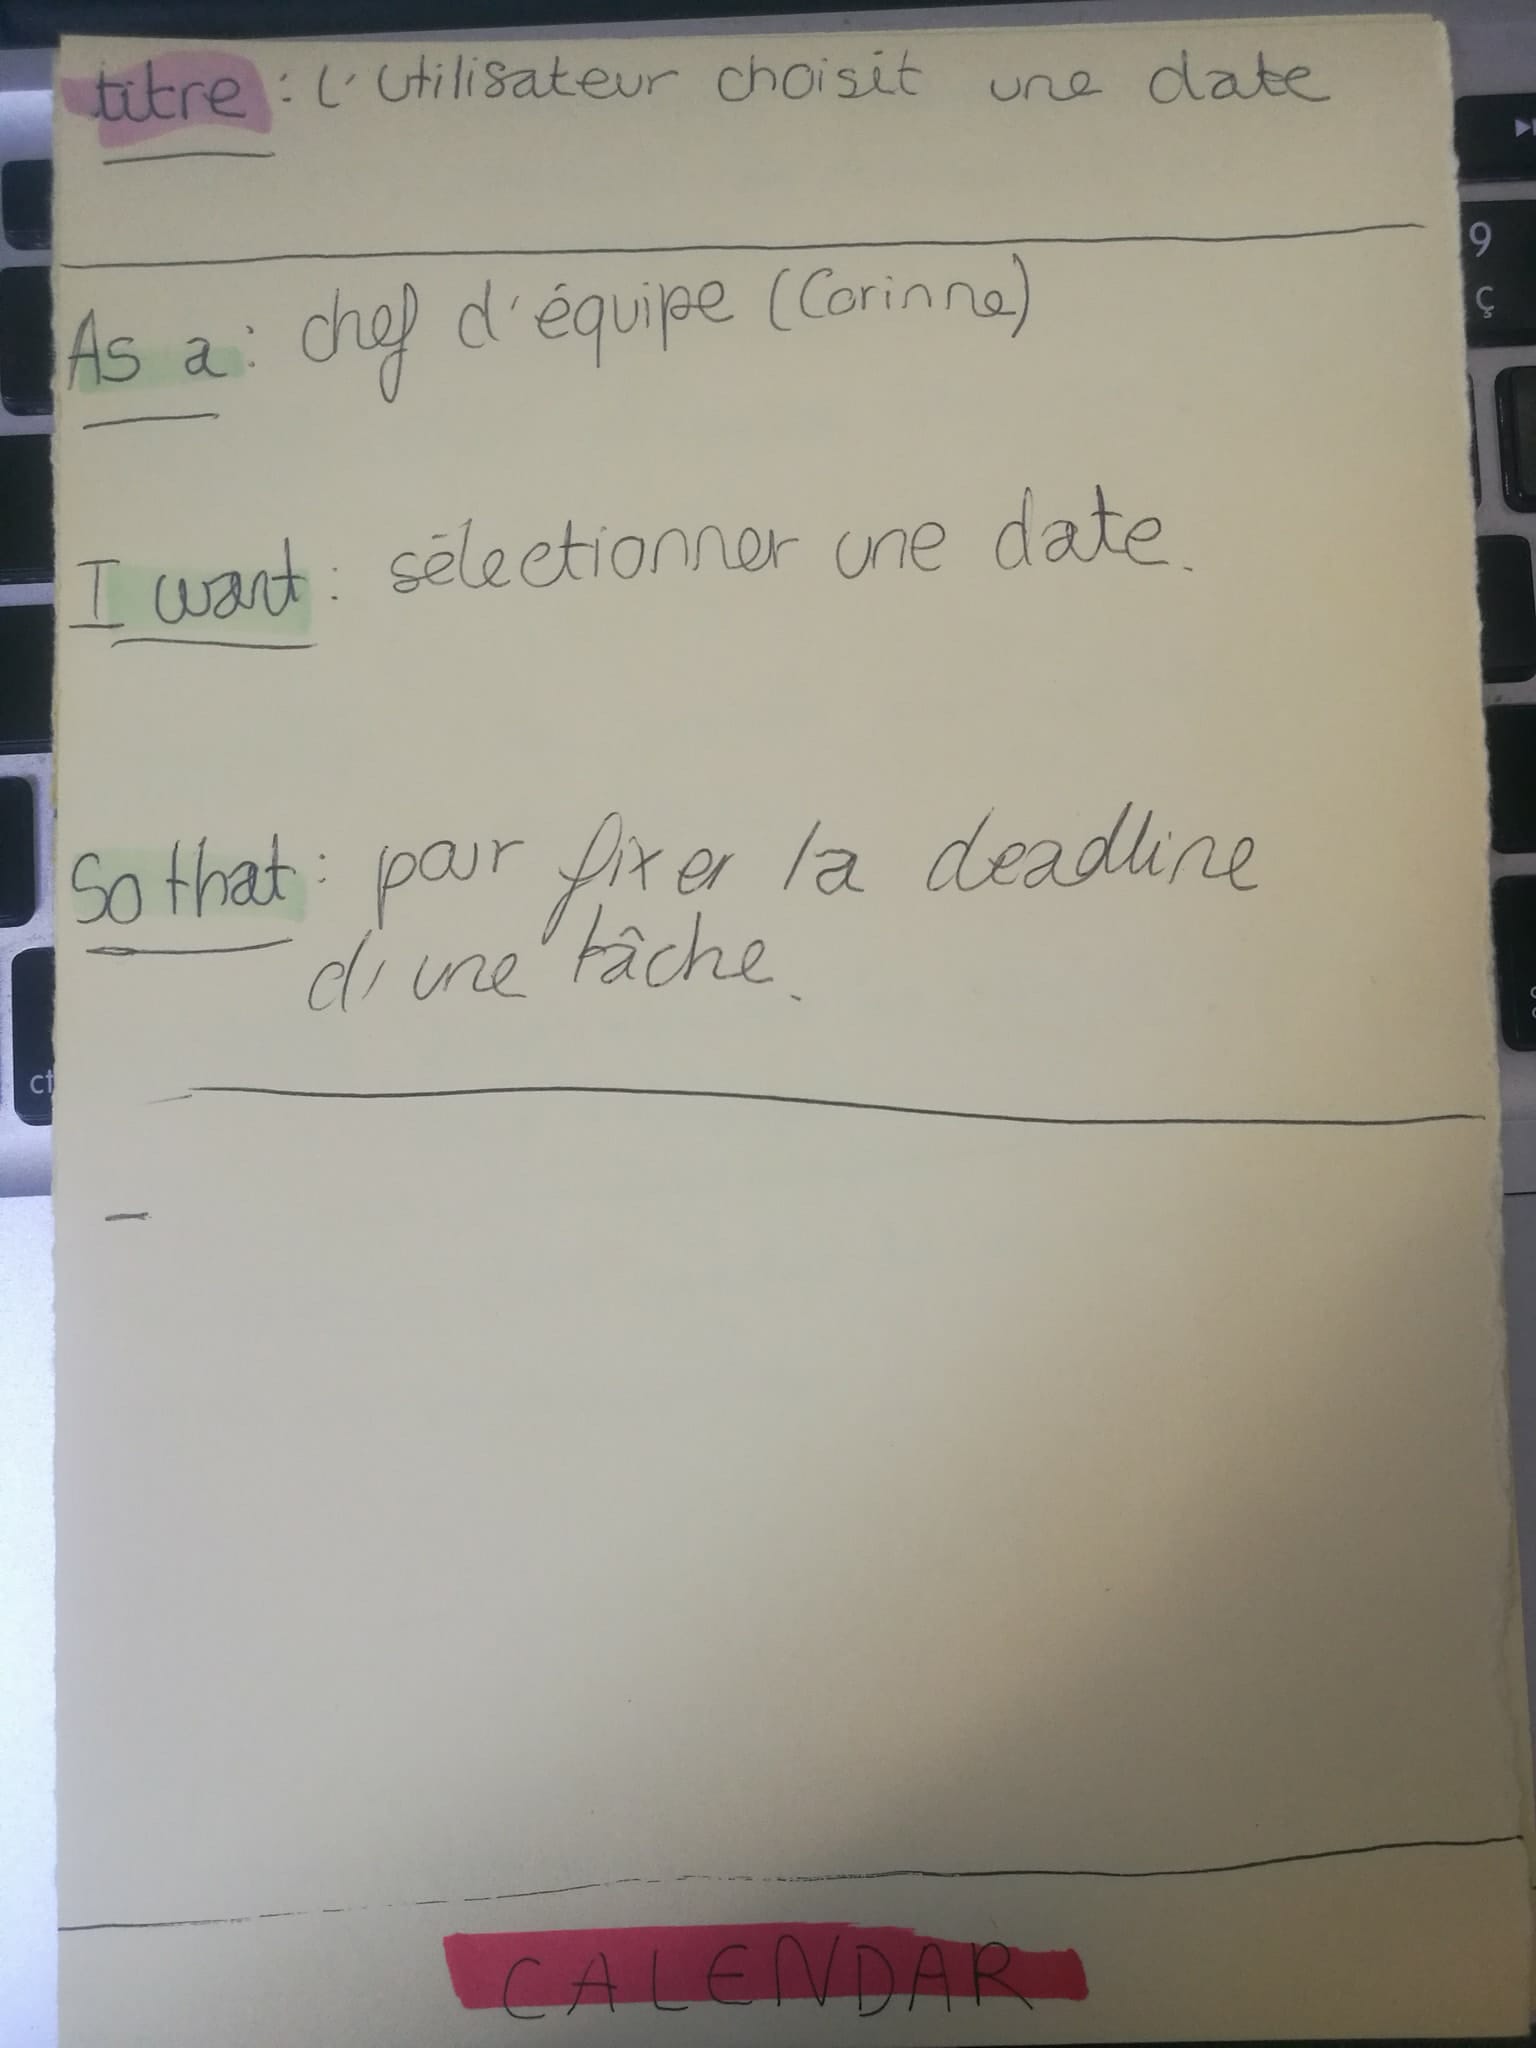 titre : l'utilisateur choisit une date
As a : chef d'équipe (Corinne)
I want : sélectionner une date.
So that : pour fixer la deadline
d'une tâche.
-
CALENDAR
9
ç